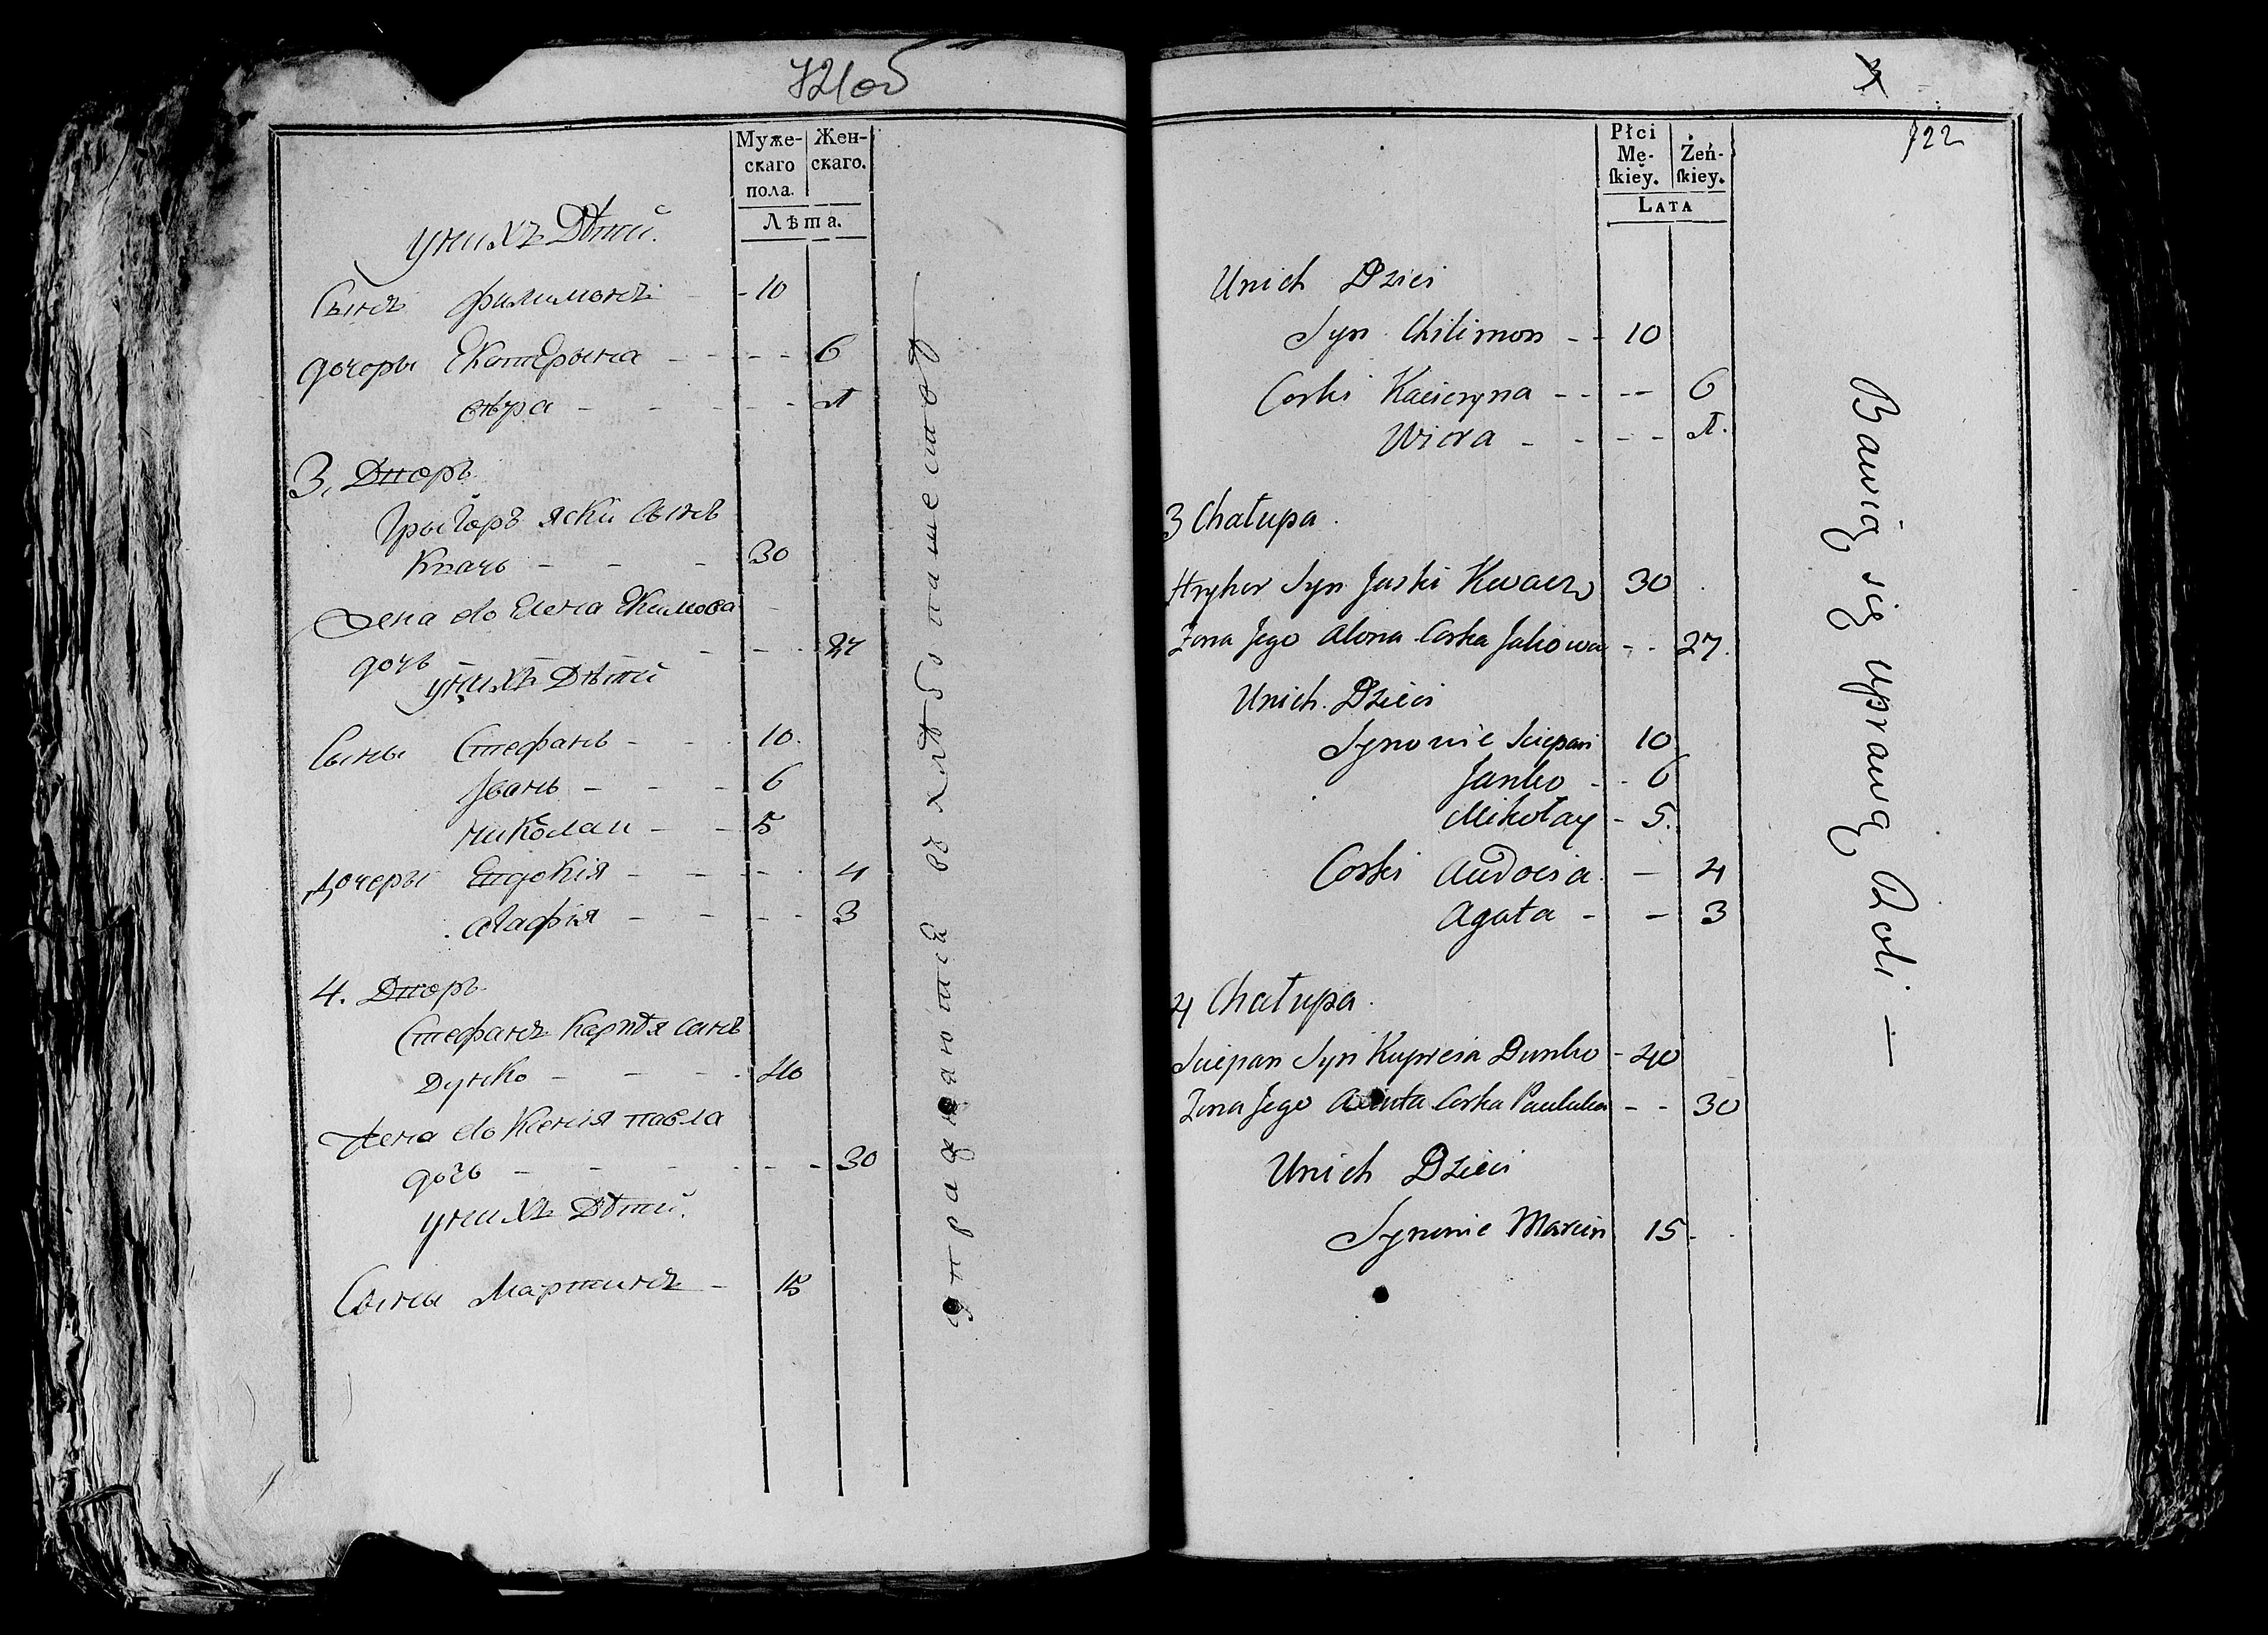 721об
Муже-
скаго
пола.
Жен-
скаго.
Лѣта.
унихъ Дѣтй.
Сынъ Филимонъ - 10
дочеры Екатерына - - - - 6
вѣра - - - - - Л
3. Дворъ
Грыгоръ яски сынъ
Квачь - - - 30
Жена его Елена Екимова
дочь - - - - - 27
унихъ Дѣтй
Сыны Стефанъ - - 10.
Іванъ - - - 6
Николай - - 5
Дочеры Евдокія - - - - 4
агафія - - - - 3
4. Дворъ
Стефанъ Карпѣя сынъ
Дунко - - - 40
Жена его Ксенія павла
дочь - - - - - 30
унихъ Дѣтй.
Сыны Мартинъ - 15
упражняются въ хлѣбопашествѣ
722
Płci
Mę-
ſkiey.
Żeń-
ſkiey.
LATA
Unich Dzieci
Syn Chilimon - - 10
Corki Kacieryna - - -- 6
Wiera - - - - Л.
3 Chałupa.
Hryhor Syn Jaski Kwacz 30
Zona Jego Alona Corka Jakowa - - 27.
Unich Dzieci
Synowie Sciepan 10
Janko - - 6
Mikołay - 5.
Corki Audocia - 4
Agata - - 3
4 Chałupa.
Sciepan Syn Kupreia Dunko - 40
Zona Jego Corka Pauluka - - 30
Unich Dzieci
Synowie Marcin 15
Bawią się uprawą Roli. —